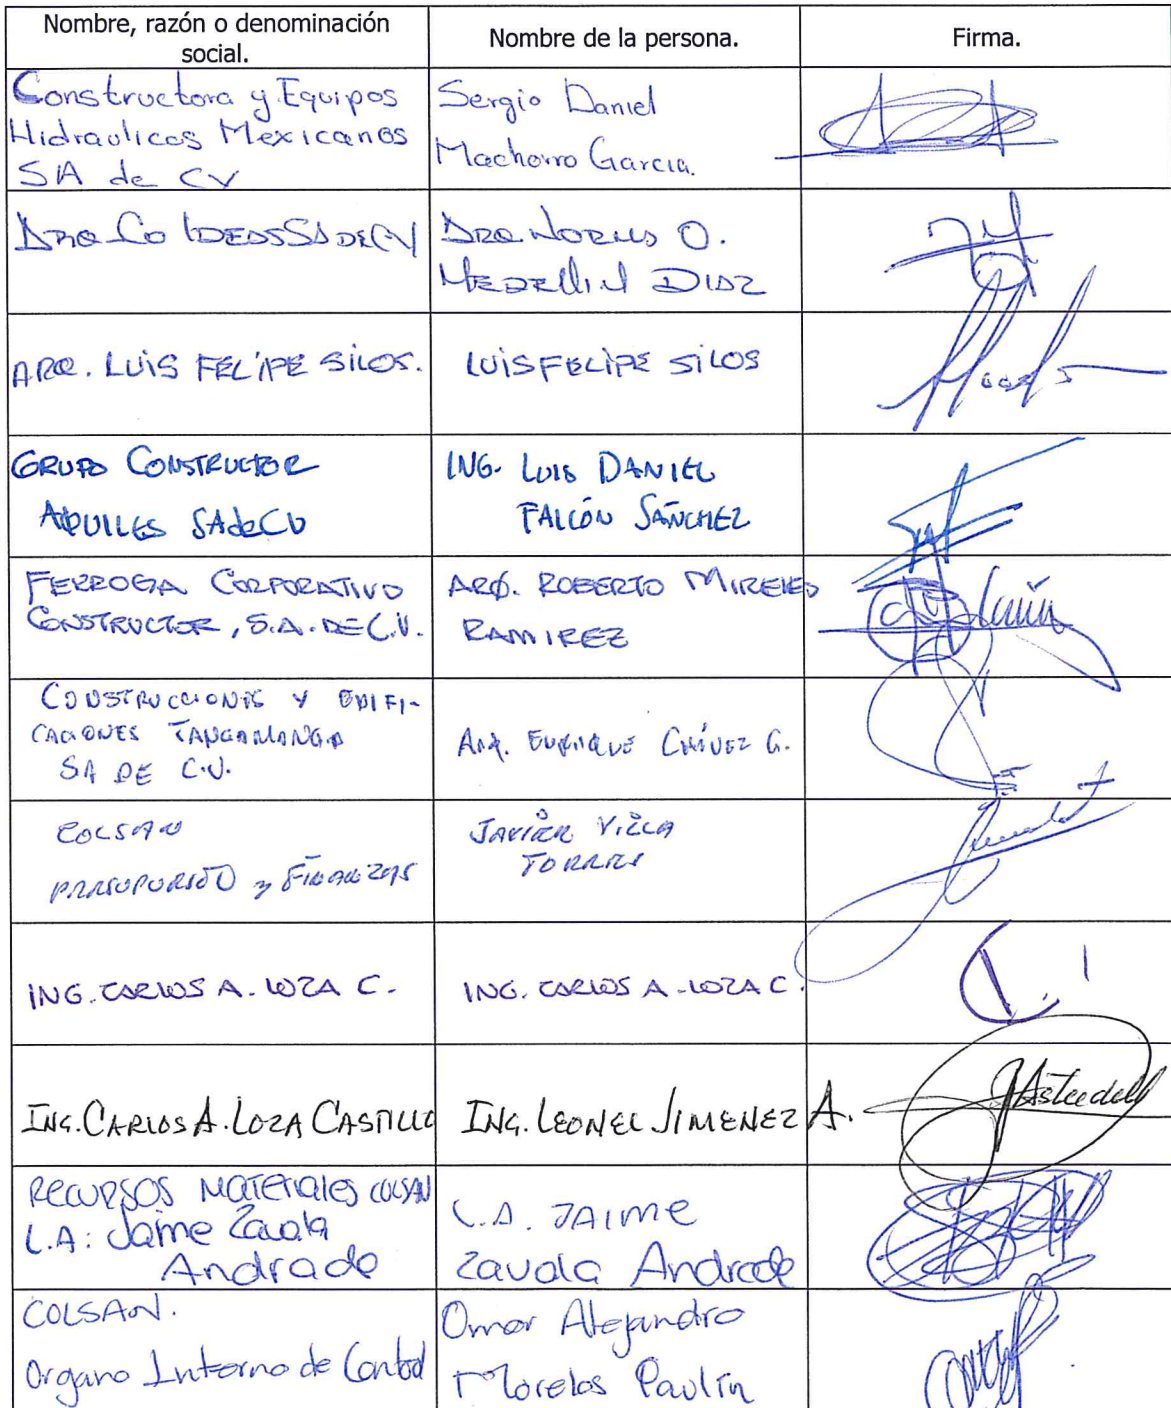 Nombre, razón o denominación
social.
Nombre de la persona.
Firma.
Constructora y Equipos
Hidraulicos Mexicanos
SA de CV
Sergio Daniel
Machorro Garcia.
ARQ Co IDEAS SA DE CV
ARQ NORMA O.
MEDELLIN DIAZ
ARQ. LUIS FELIPE SILOS.
LUIS FELIPE SILOS
GRUPO CONSTRUCTOR
AQUILES SA de CV
ING. LUIS DANIEL
FALCÓN SÁNCHEZ
FERROGA CORPORATIVO
CONSTRUCTOR, S.A. DE C.V.
ARQ. ROBERTO MIRELES
RAMIREZ
CONSTRUCCIONES Y EDIFI-
CACIONES TANGAMANGA
SA DE C.V.
ARQ. ENRIQUE CHÁVEZ G.
COLSAN
PRESUPUESTO y FINANZAS
JAVIER VILLA
TORRES
ING. CARLOS A. LOZA C.
ING. CARLOS A. LOZA C.
ING. CARLOS A. LOZA CASTILLO
ING. LEONEL JIMENEZ A.
RECURSOS MATERIALES COLSAN
L.A: Jaime Zavala
Andrade
L.A. JAIME
Zavala Andrade
COLSAN.
Organo Interno de Control
Omar Alejandro
Morelos Paulín